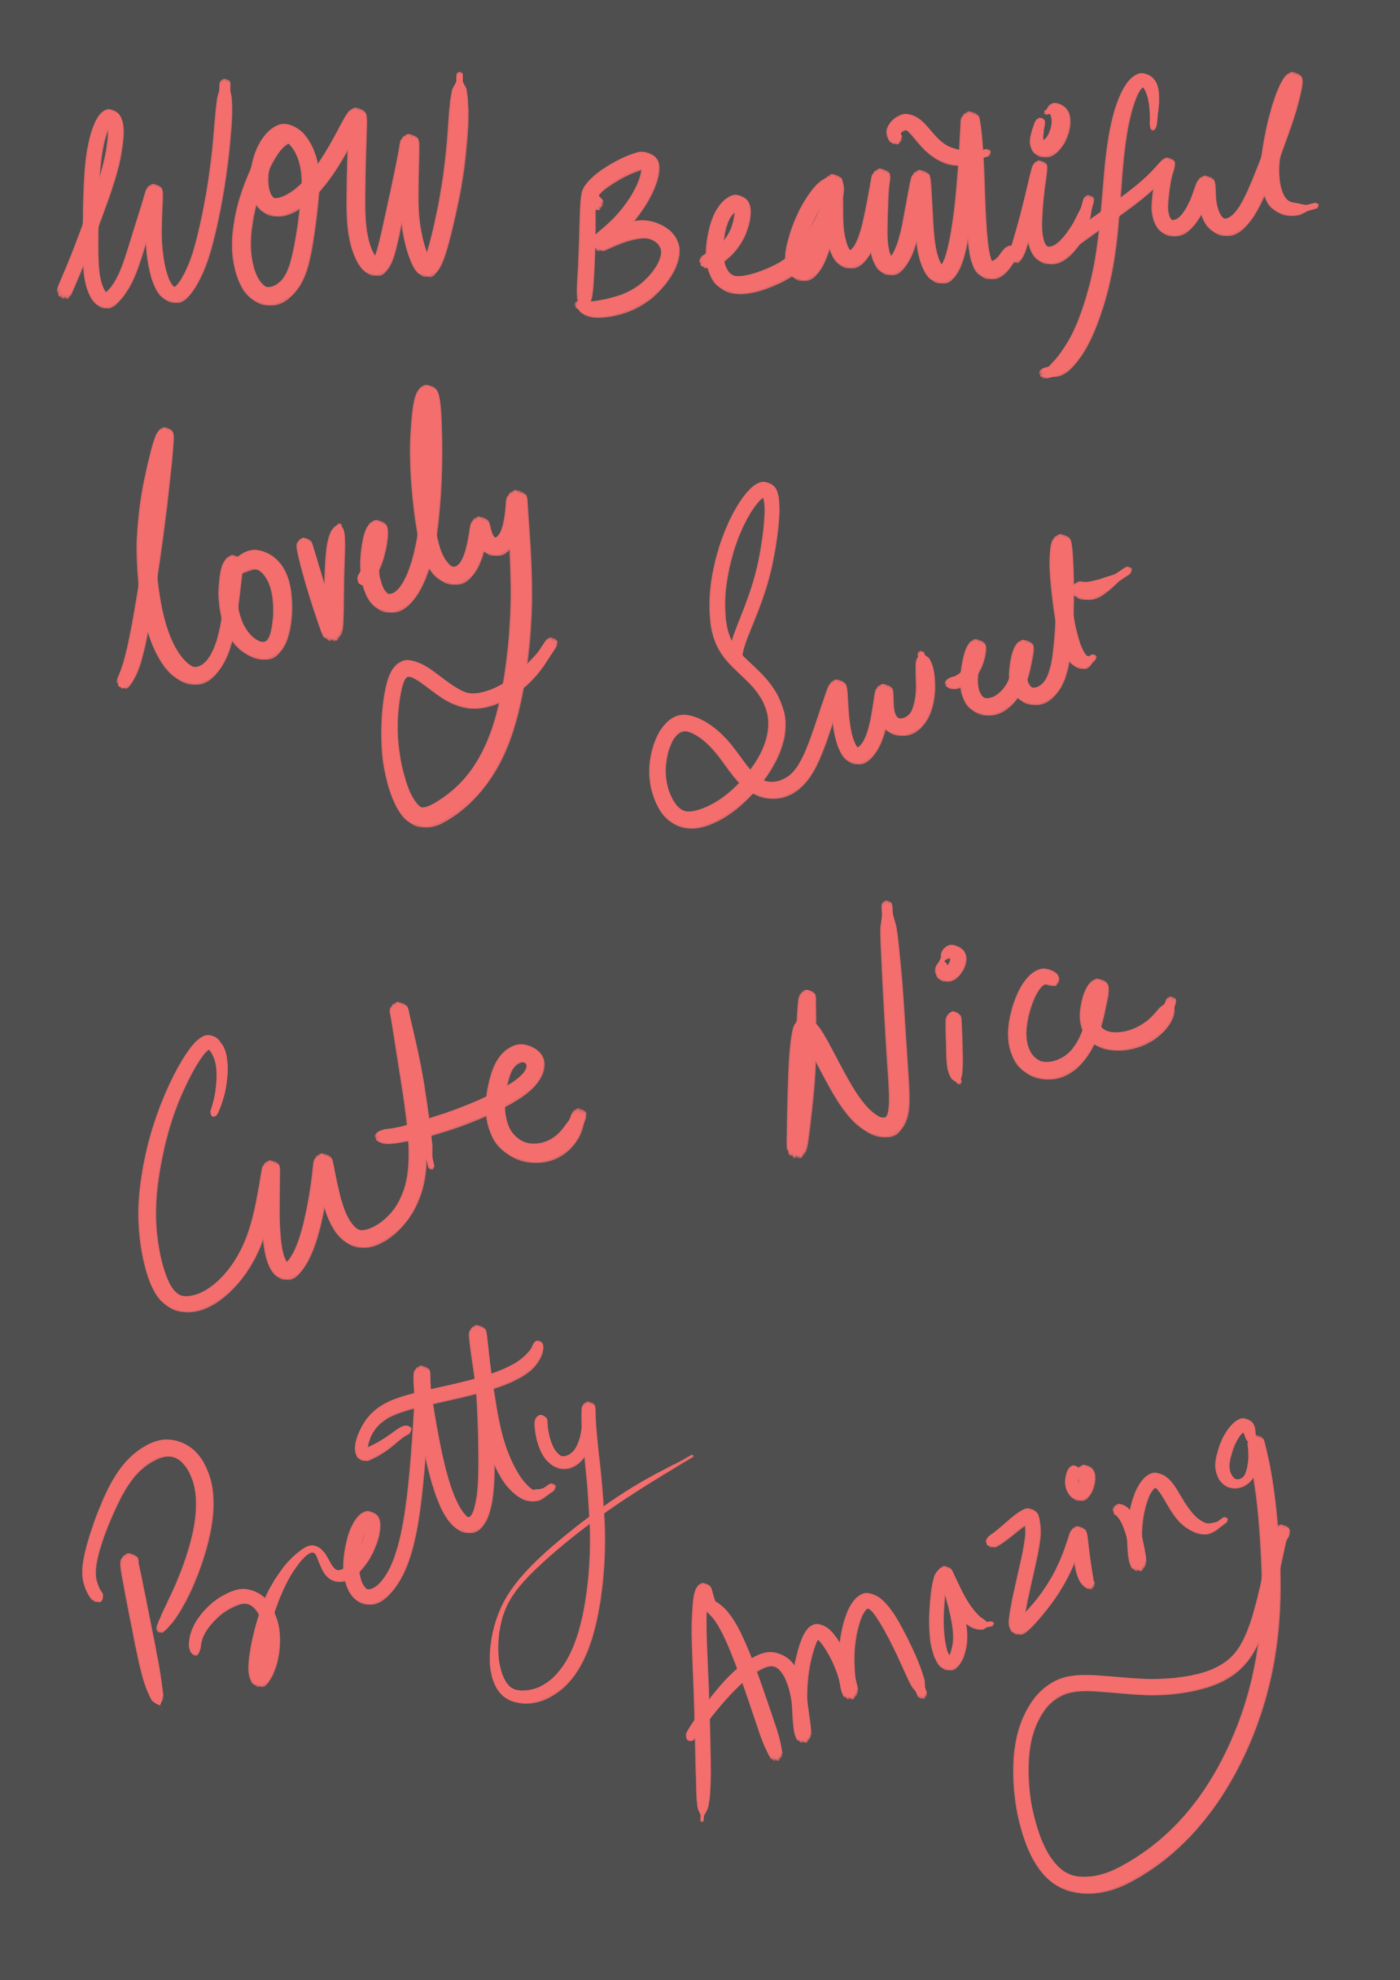 Wow Beautiful
Lovely Sweet
Cute Nice
Pretty Amazing